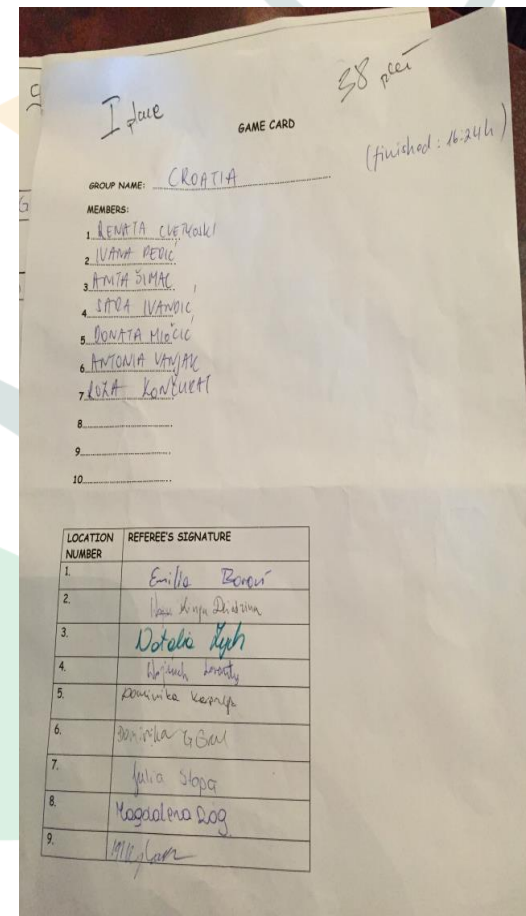 I place
38
GAME CARD
(finished: 16:24h)
GROUP NAME: CROATIA
MEMBERS:
1. RENATA
2. IVANA PERIĆ
3. ANITA ŠIMAC
4. SARA IVANDIĆ
5. DONATA MIOČIĆ
6. ANTONIA VANJAK
7. ROZA
8.
9.
10.
LOCATION NUMBER
REFEREE'S SIGNATURE
1. Emilia
2. Kinga
3. Natalia Zych
4. Wojciech
5. Dominika
6. Dominika
7. Julia Słopa
8. Magdalena Róg
9.